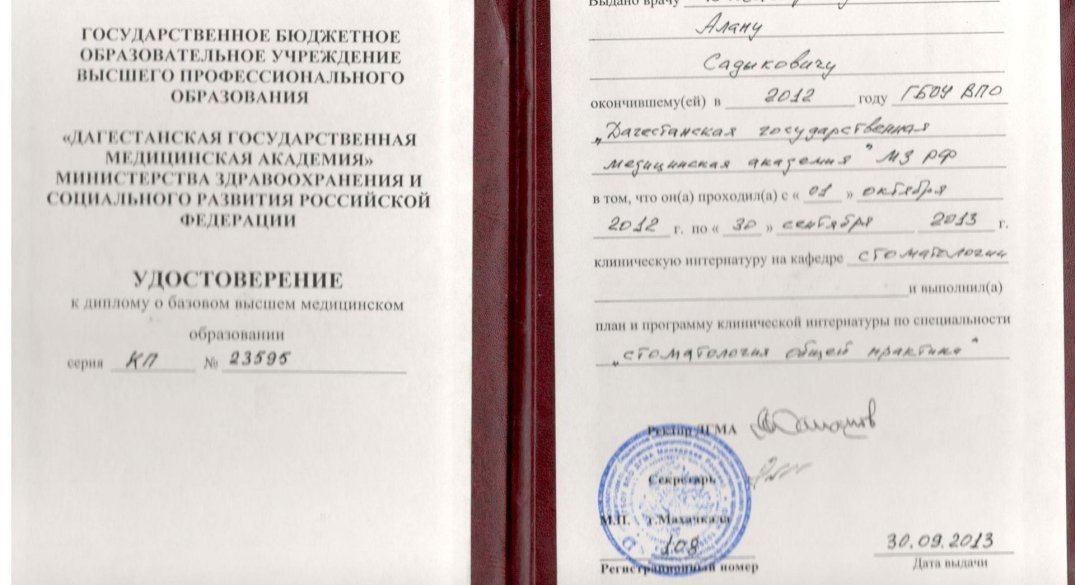 ГОСУДАРСТВЕННОЕ БЮДЖЕТНОЕ
ОБРАЗОВАТЕЛЬНОЕ УЧРЕЖДЕНИЕ
ВЫСШЕГО ПРОФЕССИОНАЛЬНОГО
ОБРАЗОВАНИЯ
«ДАГЕСТАНСКАЯ ГОСУДАРСТВЕННАЯ
МЕДИЦИНСКАЯ АКАДЕМИЯ»
МИНИСТЕРСТВА ЗДРАВООХРАНЕНИЯ И
СОЦИАЛЬНОГО РАЗВИТИЯ РОССИЙСКОЙ
ФЕДЕРАЦИИ
УДОСТОВЕРЕНИЕ
к диплому о базовом высшем медицинском
образовании
серия КП № 23595
Выдано врачу
Алану
Садыковичу
окончившему(ей) в 2012 году ГБОУ ВПО
„Дагестанская государственная
медицинская академия" МЗ РФ
в том, что он(а) проходил(а) с « 01 » октября
2012 г. по « 30 » сентября 2013 г.
клиническую интернатуру на кафедре стоматологии
и выполнил(а)
план и программу клинической интернатуры по специальности
„стоматология общей практики"
Ректор ДГМА
Секретарь
М.П. г.Махачкала
108
Регистрационный номер
30.09.2013
Дата выдачи